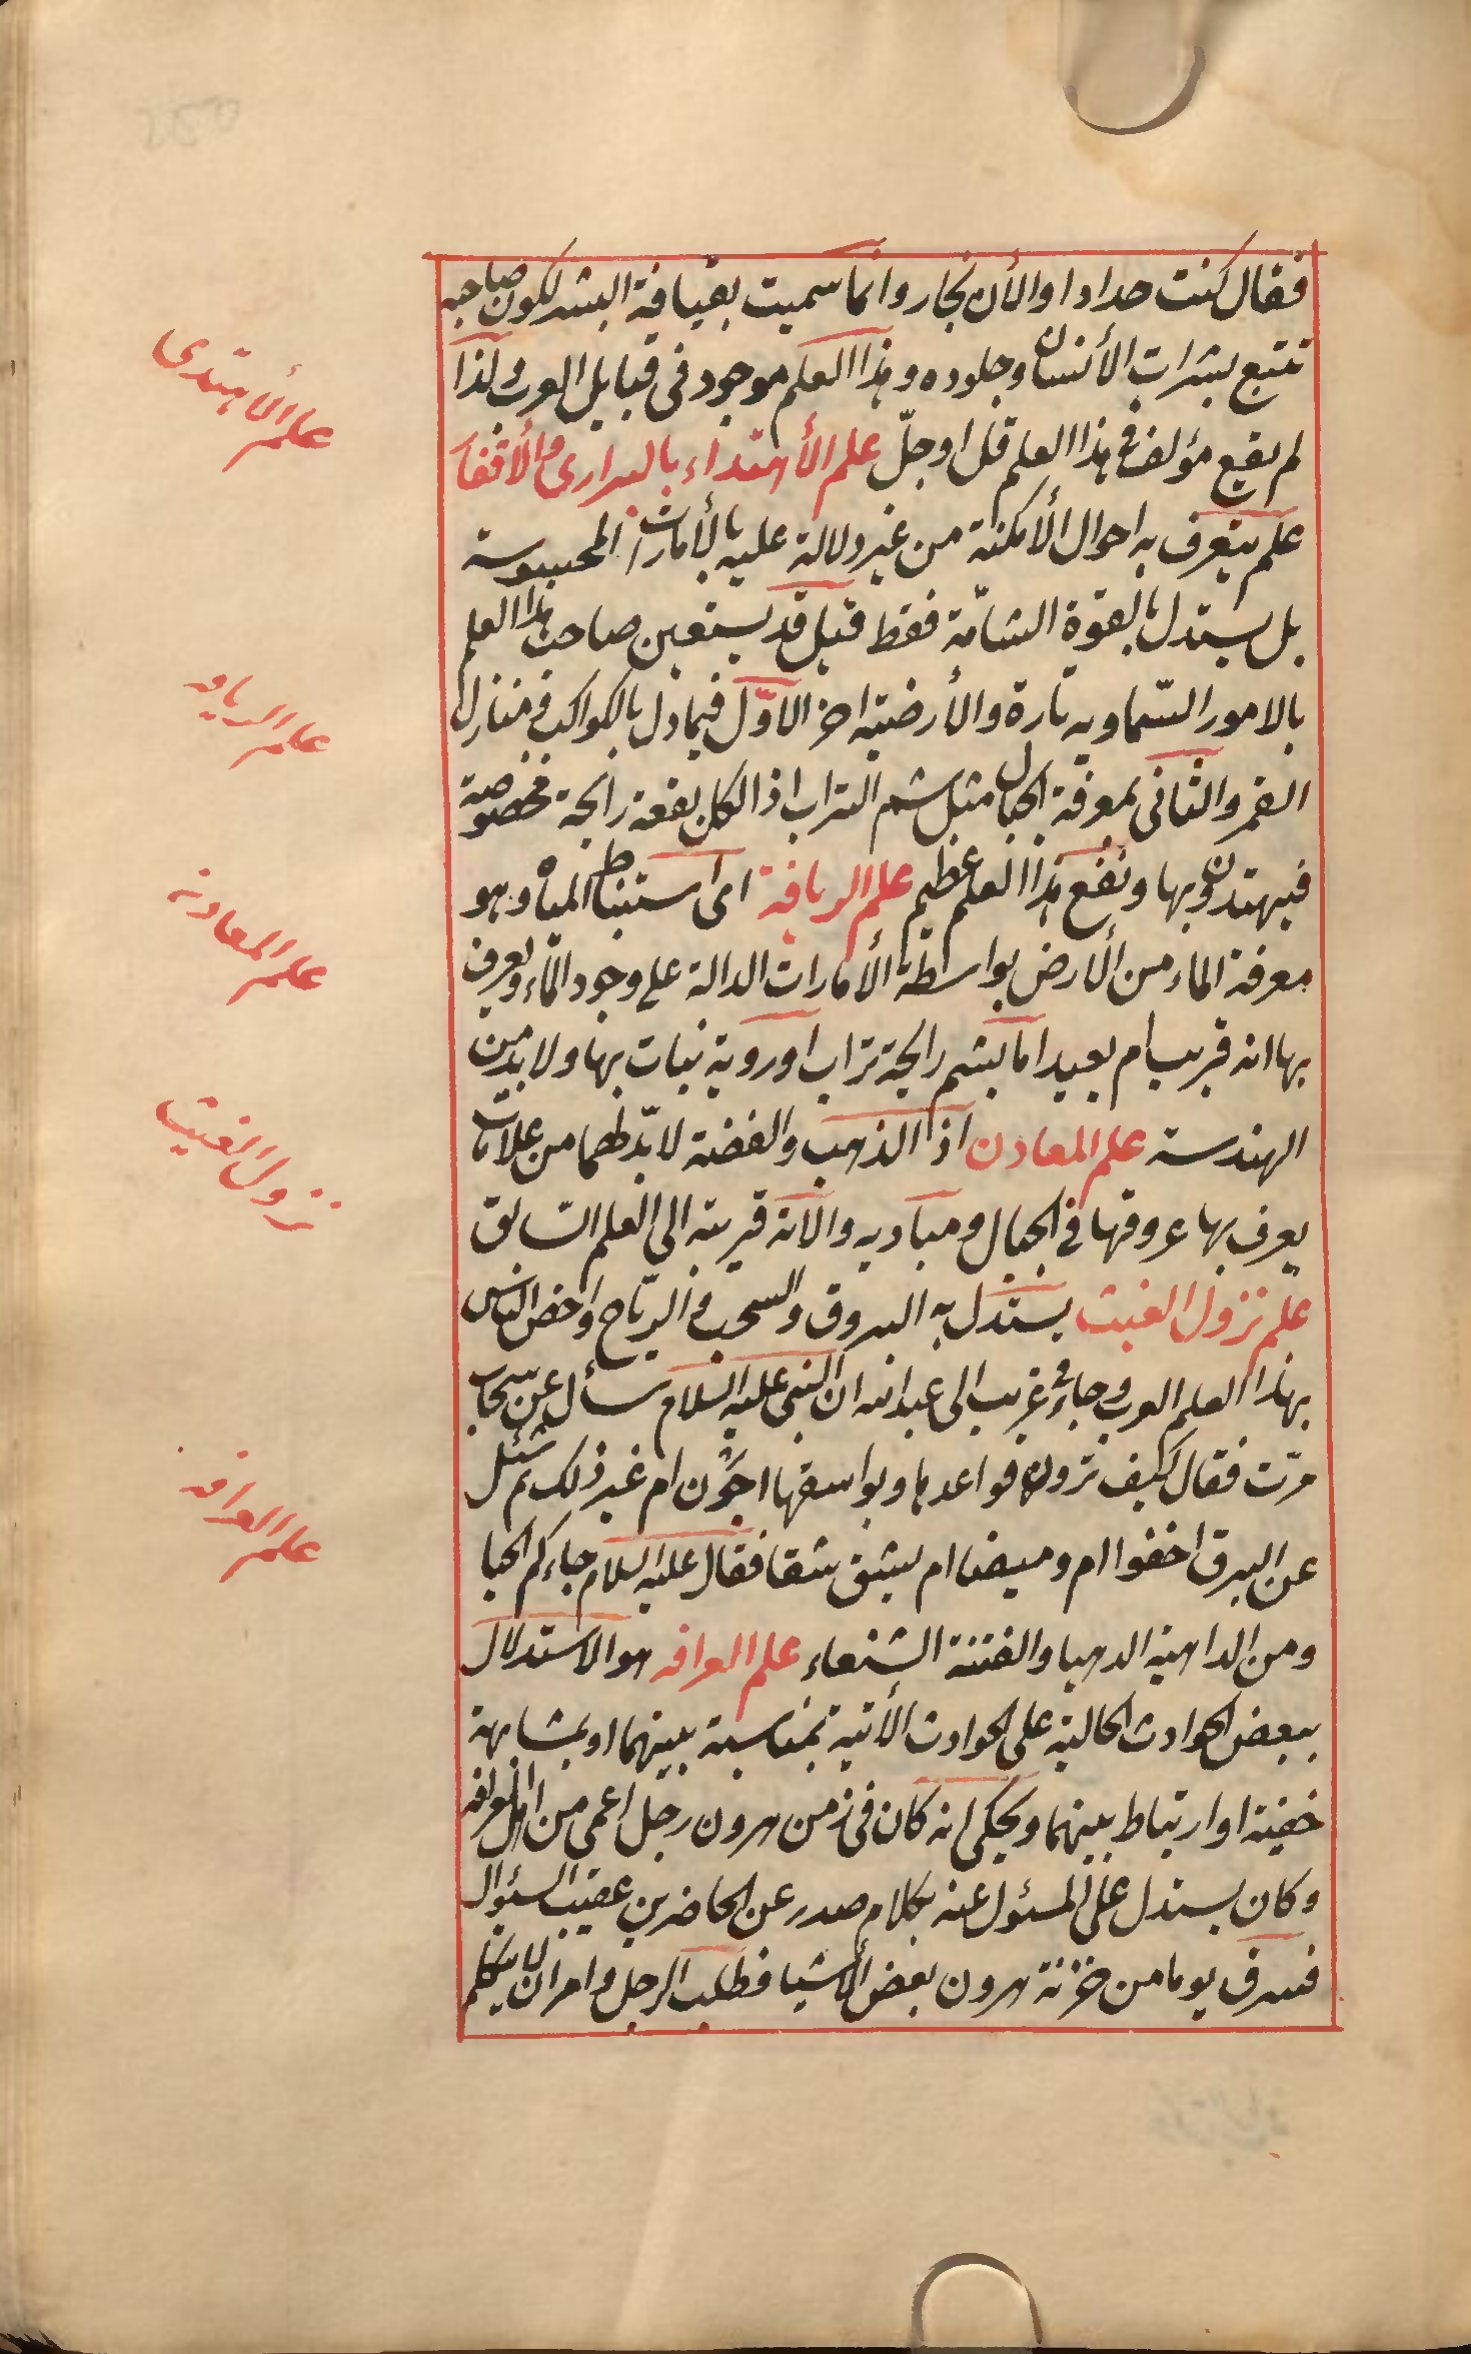 فقال كنت حدادا والأن نجار وانما سميت بقيافة البشر لكون صاحبه
تتبع بشرات الأنسان وجلوده وهذا العلم موجود فى قبايل العرب ولذا
لم يقع مؤلف فى هذا العلم قل او جلّ علم الأهتداء بالبرارى والأقفار
علم يتعرف به احوال الأمكنة من غير دلالة عليه بالأمارات المحسوسة
بل يستدل بالقوة الشامّة فقط قيل قد يستعين صاحب هذا العلم
بالامور السّماويه تارة والأرضية اخر الاوّل فيما دل بالكواكب فى منازل
القمر والثانى بمعرفة الجبال مثل شم التراب اذ الكل بقعة رايحة مخصوصة
فيهتدون بها ونفع هذا العلم عظيم علم الريافة اى استنباط المياه وهو
معرفة الماء من الأرض بواسطة الأمارات الدالة على وجود الماء ويعرف
بها انه قريب ام بعيد اما بشم رايحة تراب او روية نبات بها ولا بد من
الهندسة علم المعادن اذ الذهب والفضة لا بدّ لهما من علامات
يعرف بها عروقها فى الجبال ومباديه والاته قريبة الى العلم السابق
علم نزول الغيث يستدل به البروق والسحب فى الرياح واخص الناس
بهذا العلم العرب وجاء فى غريب الى عبد الله ان النبى عليه السلام سأل عن سحاب
مرّت فقال كيف ترون قواعدها وبواسقها اجون ام غير ذلك ثم سئل
عن البرق اخفوا ام وميضا ام يشق شقا فقال عليه السلام جاءكم الحيا
ومن الداهية الدهيا والفتنة الشنعاء علم العرافه هو الاستدلال
ببعض الحوادث الحالية على الحوادث الأتية بمناسبة بينهما او بمشابهة
خفية او ارتباط بينهما ويحكى انه كان فى زمن هرون رجل اعمى من اهل العرافه
وكان يستدل على المسئول عنه بكلام صدر عن الحاضرين عقيب السئوال
فسرق يوما من خزنة هرون بعض الأشيا فطلب الرجل وامر ان لا يتكلم
علم الأهتدى
علم الريافه
علم المعادن
نزول الغيث
علم العرافه